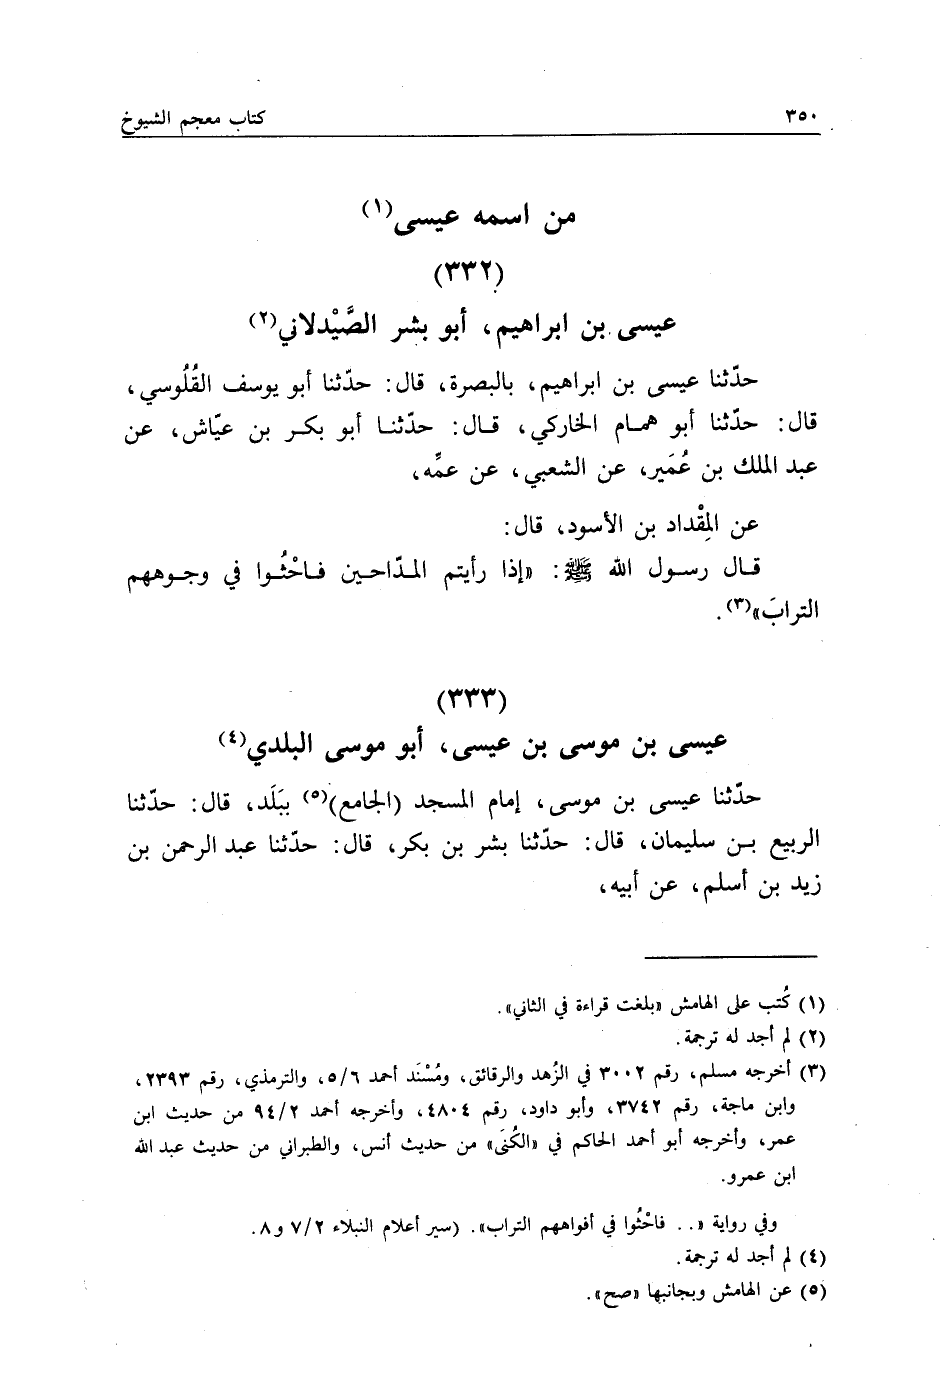 ٣٥٠ كتاب معجم الشيوخ
من اسمه عيسى(١)
(٣٣٢)
عيسى بن ابراهيم، أبو بشر الصَّيْدلاني(٢)
حدّثنا عيسى بن ابراهيم، بالبصرة، قال: حدّثنا أبو يوسف القُلُوسي،
قال: حدّثنا أبو همام الخاركي، قال: حدّثنا أبو بكر بن عيّاش، عن
عبد الملك بن عُمَير، عن الشعبي، عن عمِّه،
عن المِقْداد بن الأسود، قال:
قال رسول الله ﷺ: «إذا رأيتم المدّاحين فاحْثُوا في وجوههم
الترابَ»(٣).
(٣٣٣)
عيسى بن موسى بن عيسى، أبو موسى البلدي(٤)
حدّثنا عيسى بن موسى، إمام المسجد (الجامع)(٥) ببَلَد، قال: حدّثنا
الربيع بن سليمان، قال: حدّثنا بشر بن بكر، قال: حدّثنا عبد الرحمن بن
زيد بن أسلم، عن أبيه،
(١) كُتب على الهامش «بلغت قراءة في الثاني».
(٢) لم أجد له ترجمة.
(٣) أخرجه مسلم، رقم ٣٠٠٢ في الزُهد والرقائق، ومُسْنَد أحمد ٥/٦، والترمذي، رقم ٢٣٩٣،
وابن ماجة، رقم ٣٧٤٢، وأبو داود، رقم ٤٨٠٤، وأخرجه أحمد ٩٤/٢ من حديث ابن
عمر، وأخرجه أبو أحمد الحاكم في «الكُنَى» من حديث أنس، والطبراني من حديث عبد الله
ابن عمرو.
وفي رواية «.. فاحْثُوا في أفواههم التراب». (سير أعلام النبلاء ٧/٢ و٨.
(٤) لم أجد له ترجمة.
(٥) عن الهامش وبجانبها «صح».